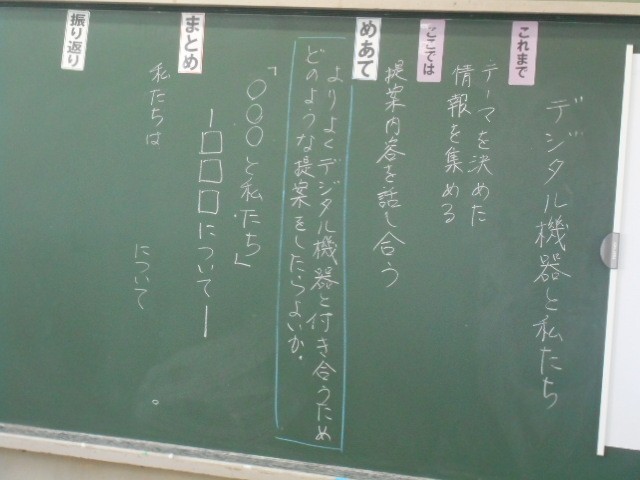 デジタル機器と私たち
これまで
テーマを決めた
情報を集める
ここでは
提案内容を話し合う
めあて
よりよくデジタル機器と付き合うため
どのような提案をしたらよいか。
「○○○と私たち」
―□□□について―
まとめ
私たちは
について
。
振り返り